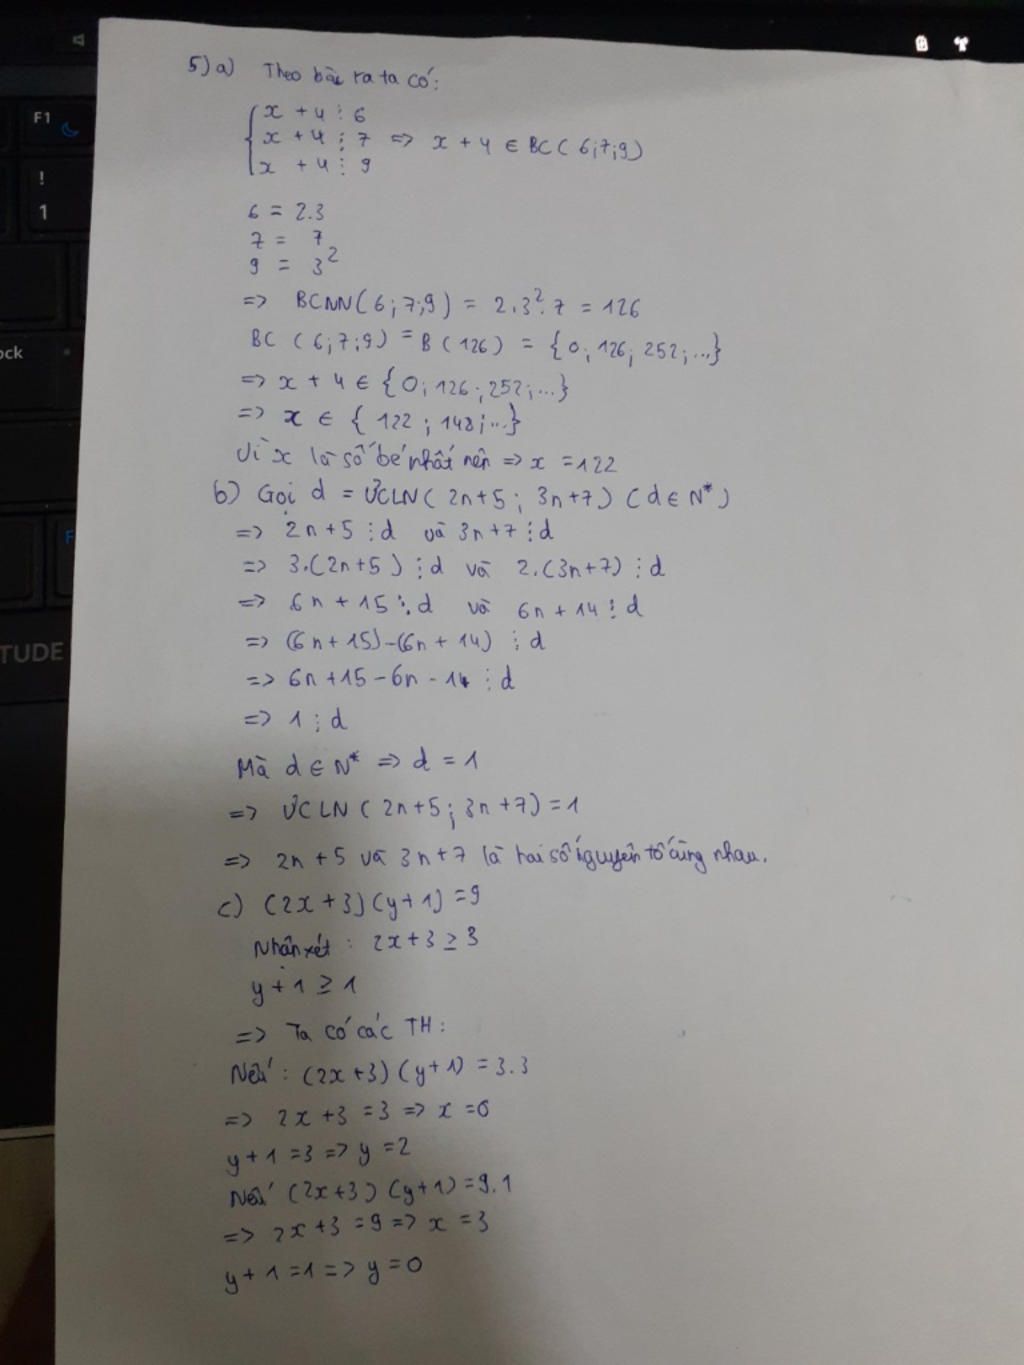 5) a) Theo bài ra ta có:
x + 4 ⋮ 6
x + 4 ⋮ 7 => x + 4 ∈ BC( 6;7;9)
x + 4 ⋮ 9
6 = 2.3
7 = 7
9 = 3²
=> BCNN( 6 ; 7;9 ) = 2.3².7 = 126
BC ( 6;7;9) = B ( 126 ) = { 0 ; 126; 252 ;...}
=> x + 4 ∈ { 0; 126 ; 252 ;...}
=> x ∈ { 122 ; 148 ;...}
Vì x là số bé nhất nên => x = 122
b) Gọi d = ƯCLN( 2n+5 ; 3n+7 ) ( d ∈ N*)
=> 2n+5 ⋮ d và 3n+7 ⋮ d
=> 3.(2n+5 ) ⋮ d và 2.(3n+7) ⋮ d
=> 6n + 15 ⋮ d và 6n + 14 ⋮ d
=> (6n + 15) - (6n + 14) ⋮ d
=> 6n +15 - 6n - 14 ⋮ d
=> 1 ⋮ d
Mà d ∈ N* => d = 1
=> ƯCLN ( 2n+5 ; 3n +7 ) = 1
=> 2n + 5 và 3n + 7 là hai số nguyên tố cùng nhau.
c) (2x + 3) (y + 1) = 9
Nhận xét : 2x+3 ≥ 3
y + 1 ≥ 1
=> Ta có các TH :
Nếu : (2x +3) ( y + 1) = 3.3
=> 2x +3 = 3 => x = 0
y + 1 = 3 => y = 2
Nếu (2x +3 ) (y+1) = 9.1
=> 2x +3 = 9 => x = 3
y + 1 = 1 => y = 0
F1
!
1
ock
F
TUDE